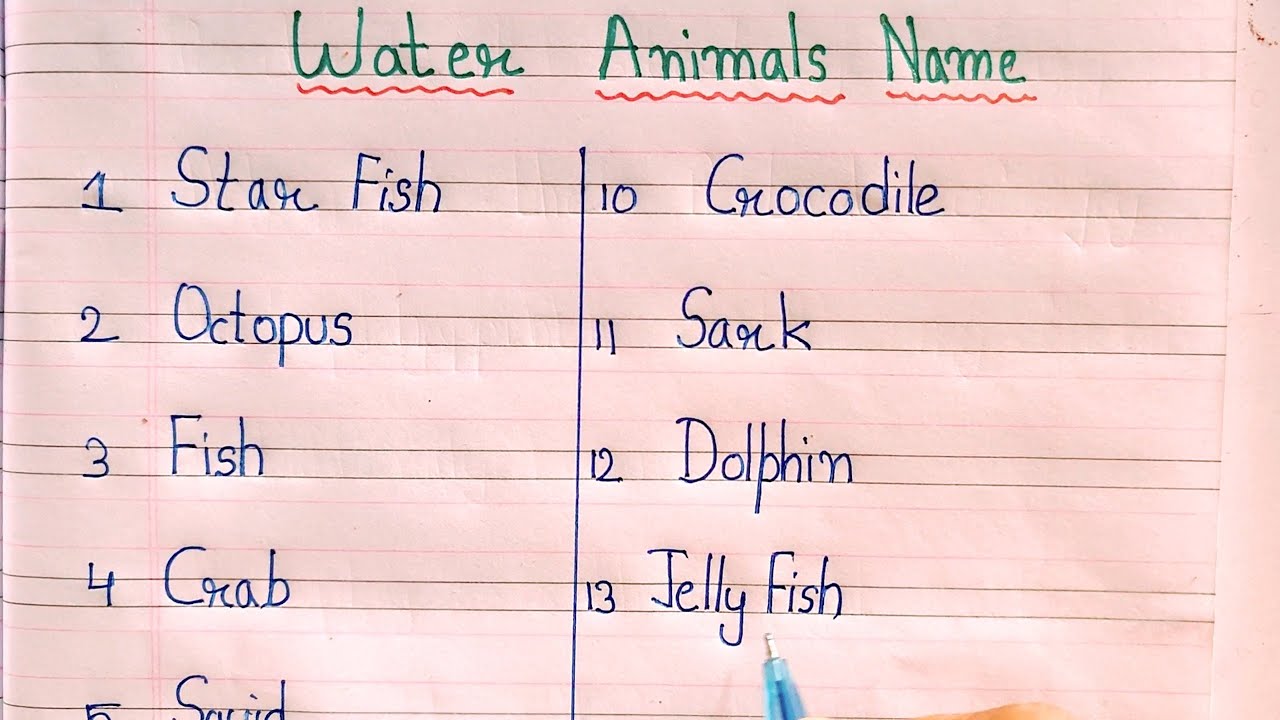 Water Animals Name
1 Star Fish
2 Octopus
3 Fish
4 Crab
5 Squid
10 Crocodile
11 Sark
12 Dolphin
13 Jelly Fish